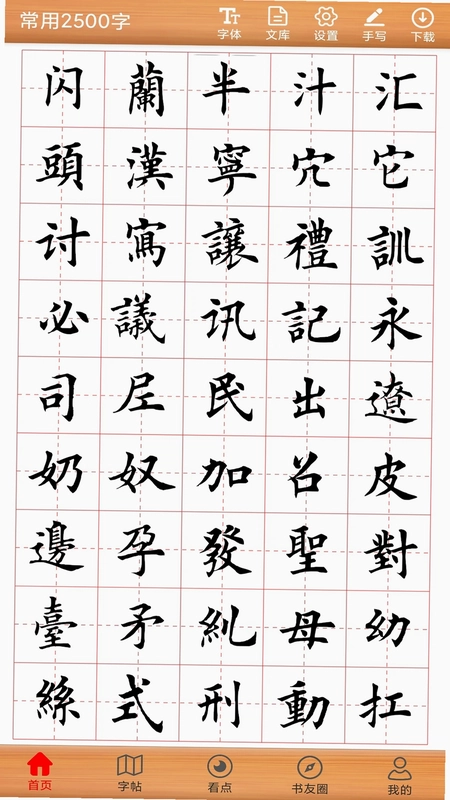 常用2500字
字体 文库 设置 手写 下载
闪 蘭 半 汁 汇
頭 漢 寧 穴 它
讨 寫 讓 禮 訓
必 議 讯 記 永
司 尼 民 出 遼
奶 奴 加 召 皮
邊 孕 發 聖 對
臺 矛 糺 母 幼
絲 式 刑 動 扛
首页 字帖 看点 书友圈 我的